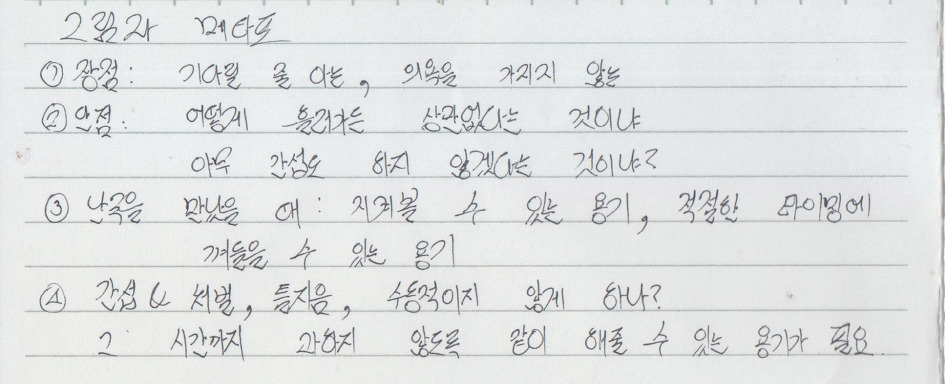 그림자 메타포
① 장점: 기다릴 줄 아는, 의욕을 가지지 않는
② 안점: 어떻게 흘러가든 상관없다는 것이냐
아무 간섭도 하지 않겠다는 것이냐?
③ 난국을 만났을 때: 지켜볼 수 있는 용기, 적절한 타이밍에
껴들을 수 있는 용기
④ 간섭 & 처벌, 틀지음, 수동적이지 않게 하나?
그 시간까지 과하지 않도록 같이 해줄 수 있는 용기가 필요